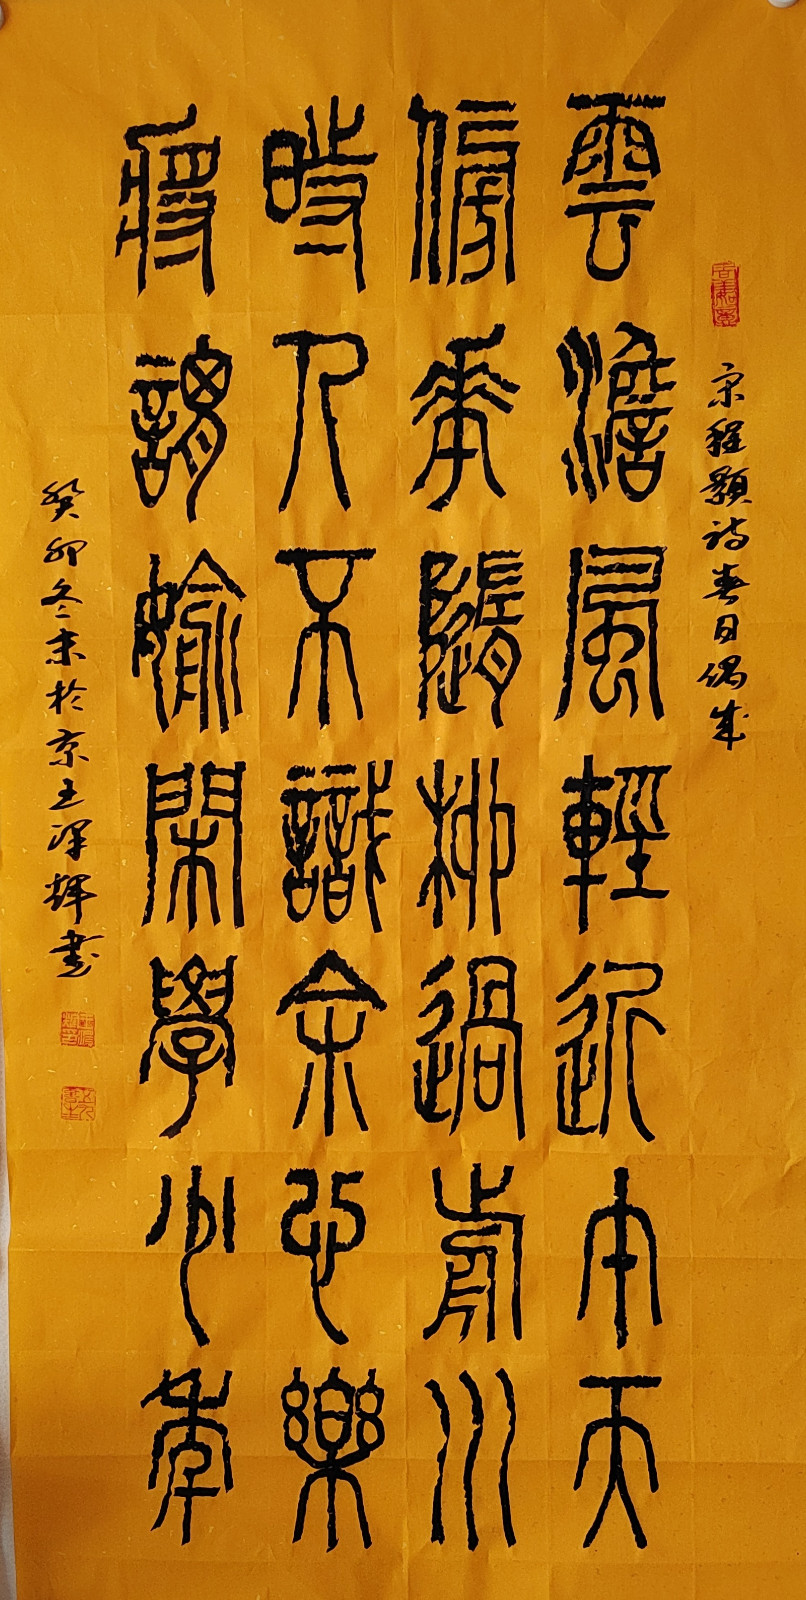 宋程顥诗春日偶成
雲澹風輕近午天
傍華隨柳過前川
時人不識余心樂
將謂媮閑學少年
癸卯冬末於京王泽辉书